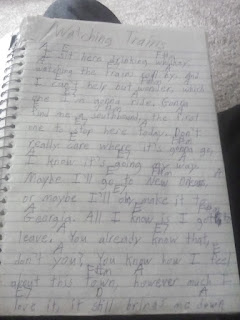 Watching Trains
A E F#m
I sit here drinking whiskey
watching the trains roll by. And
I can't help but wonder, which
one I'm gonna ride. Gonna
find me southbound, the first
one to stop here today. Don't
really care where it's gonna go,
I know it's going my way.
Maybe I'll go to New
or maybe I'll make it to
Georgia. All I know is I gotta
E7 A
leave. You already know that,
A E
don't you? You know how I feel
F#m A
about this town, however much I
E7 D A
love it, it still brings me down